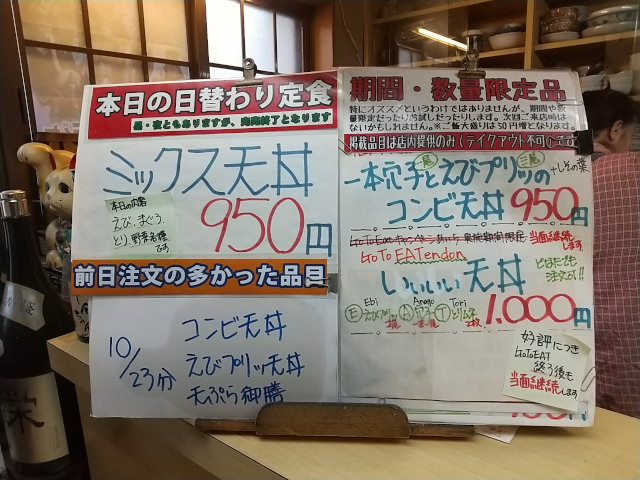 本日の日替わり定食
昼・夜ともありますが、売切終了となります
ミックス天丼
本日の内容
えび、まぐろ
とり、野菜各種
です。
950円
前日注文の多かった品目
10/23分
コンビ天丼
えびプリッ天丼
天ぷら御膳
期間・数量限定品
特にオススメというわけではありませんが、期間や数
量限定だったりお試しだったりします。次回ご来店時は
ないかもしれません。※ご飯大盛りは50円増となります。
掲載品目は店内提供のみ(テイクアウト不可)です
一本穴子とえびプリッの
+しその葉
コンビ天丼 950円
GoToEatキャンペーン
当面継続します
GoTo EATendon
いいいい天丼
どなたでも
注文可!!
Ebi Anago Tori
E えびプリッ 2尾 A 一本 T とりムネ 2枚
1.000円
好評につき
GoToEAT
終了後も
当面継続します